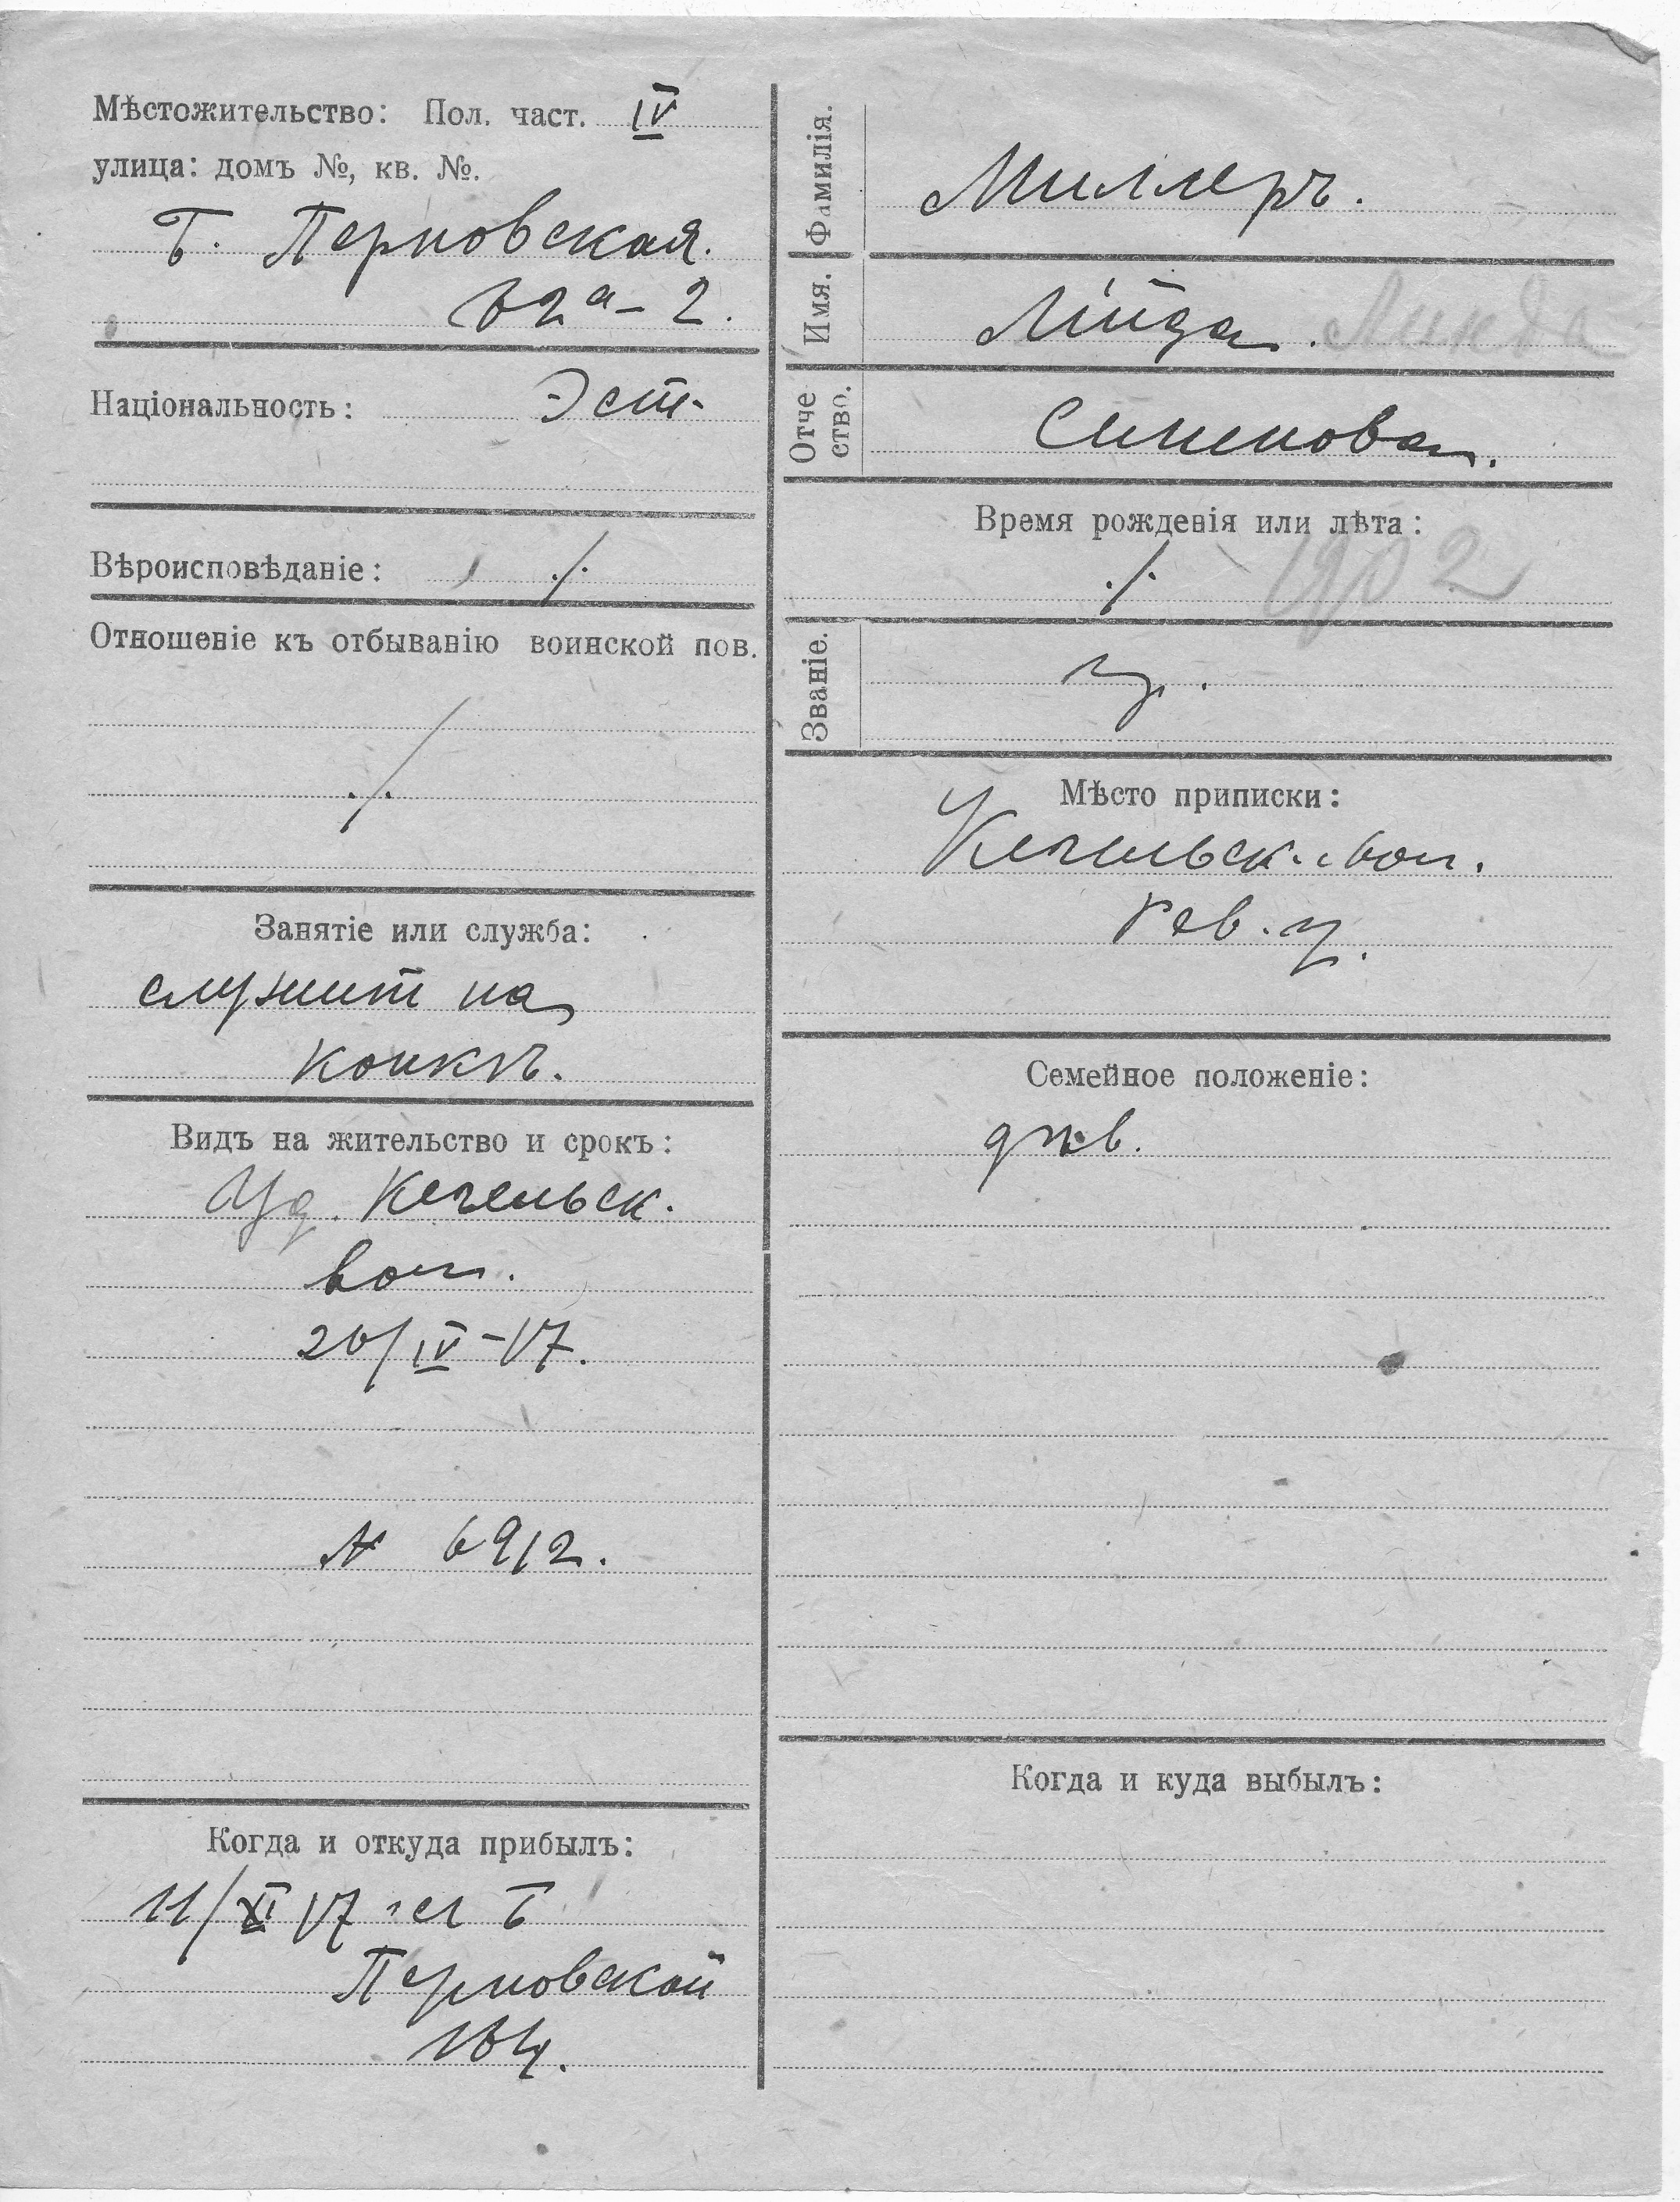 Мѣстожительство: Пол. част. IV
улица: домъ №, кв. №.
Б. Перновская.
62а – 2.
Національность: Эст.
Вѣроисповѣданіе: ./.
Отношеніе къ отбыванію воинской пов.
./.
Занятіе или служба:
служит на
конкѣ.
Видъ на жительство и срокъ:
Уд. Кегельск.
вол.
20/IV – 17.
№ 6912.
Когда и откуда прибылъ:
11/XI 17 с Б
Перновской
Фамилія. Миллеръ.
Имя. Лійда. Линда
Отчество.
Время рожденія или лѣта:
./. 1902
Званіе.
Мѣсто приписки:
Кегельск. вол.
Рев. у.
Семейное положеніе:
дѣв.
Когда и куда выбылъ: